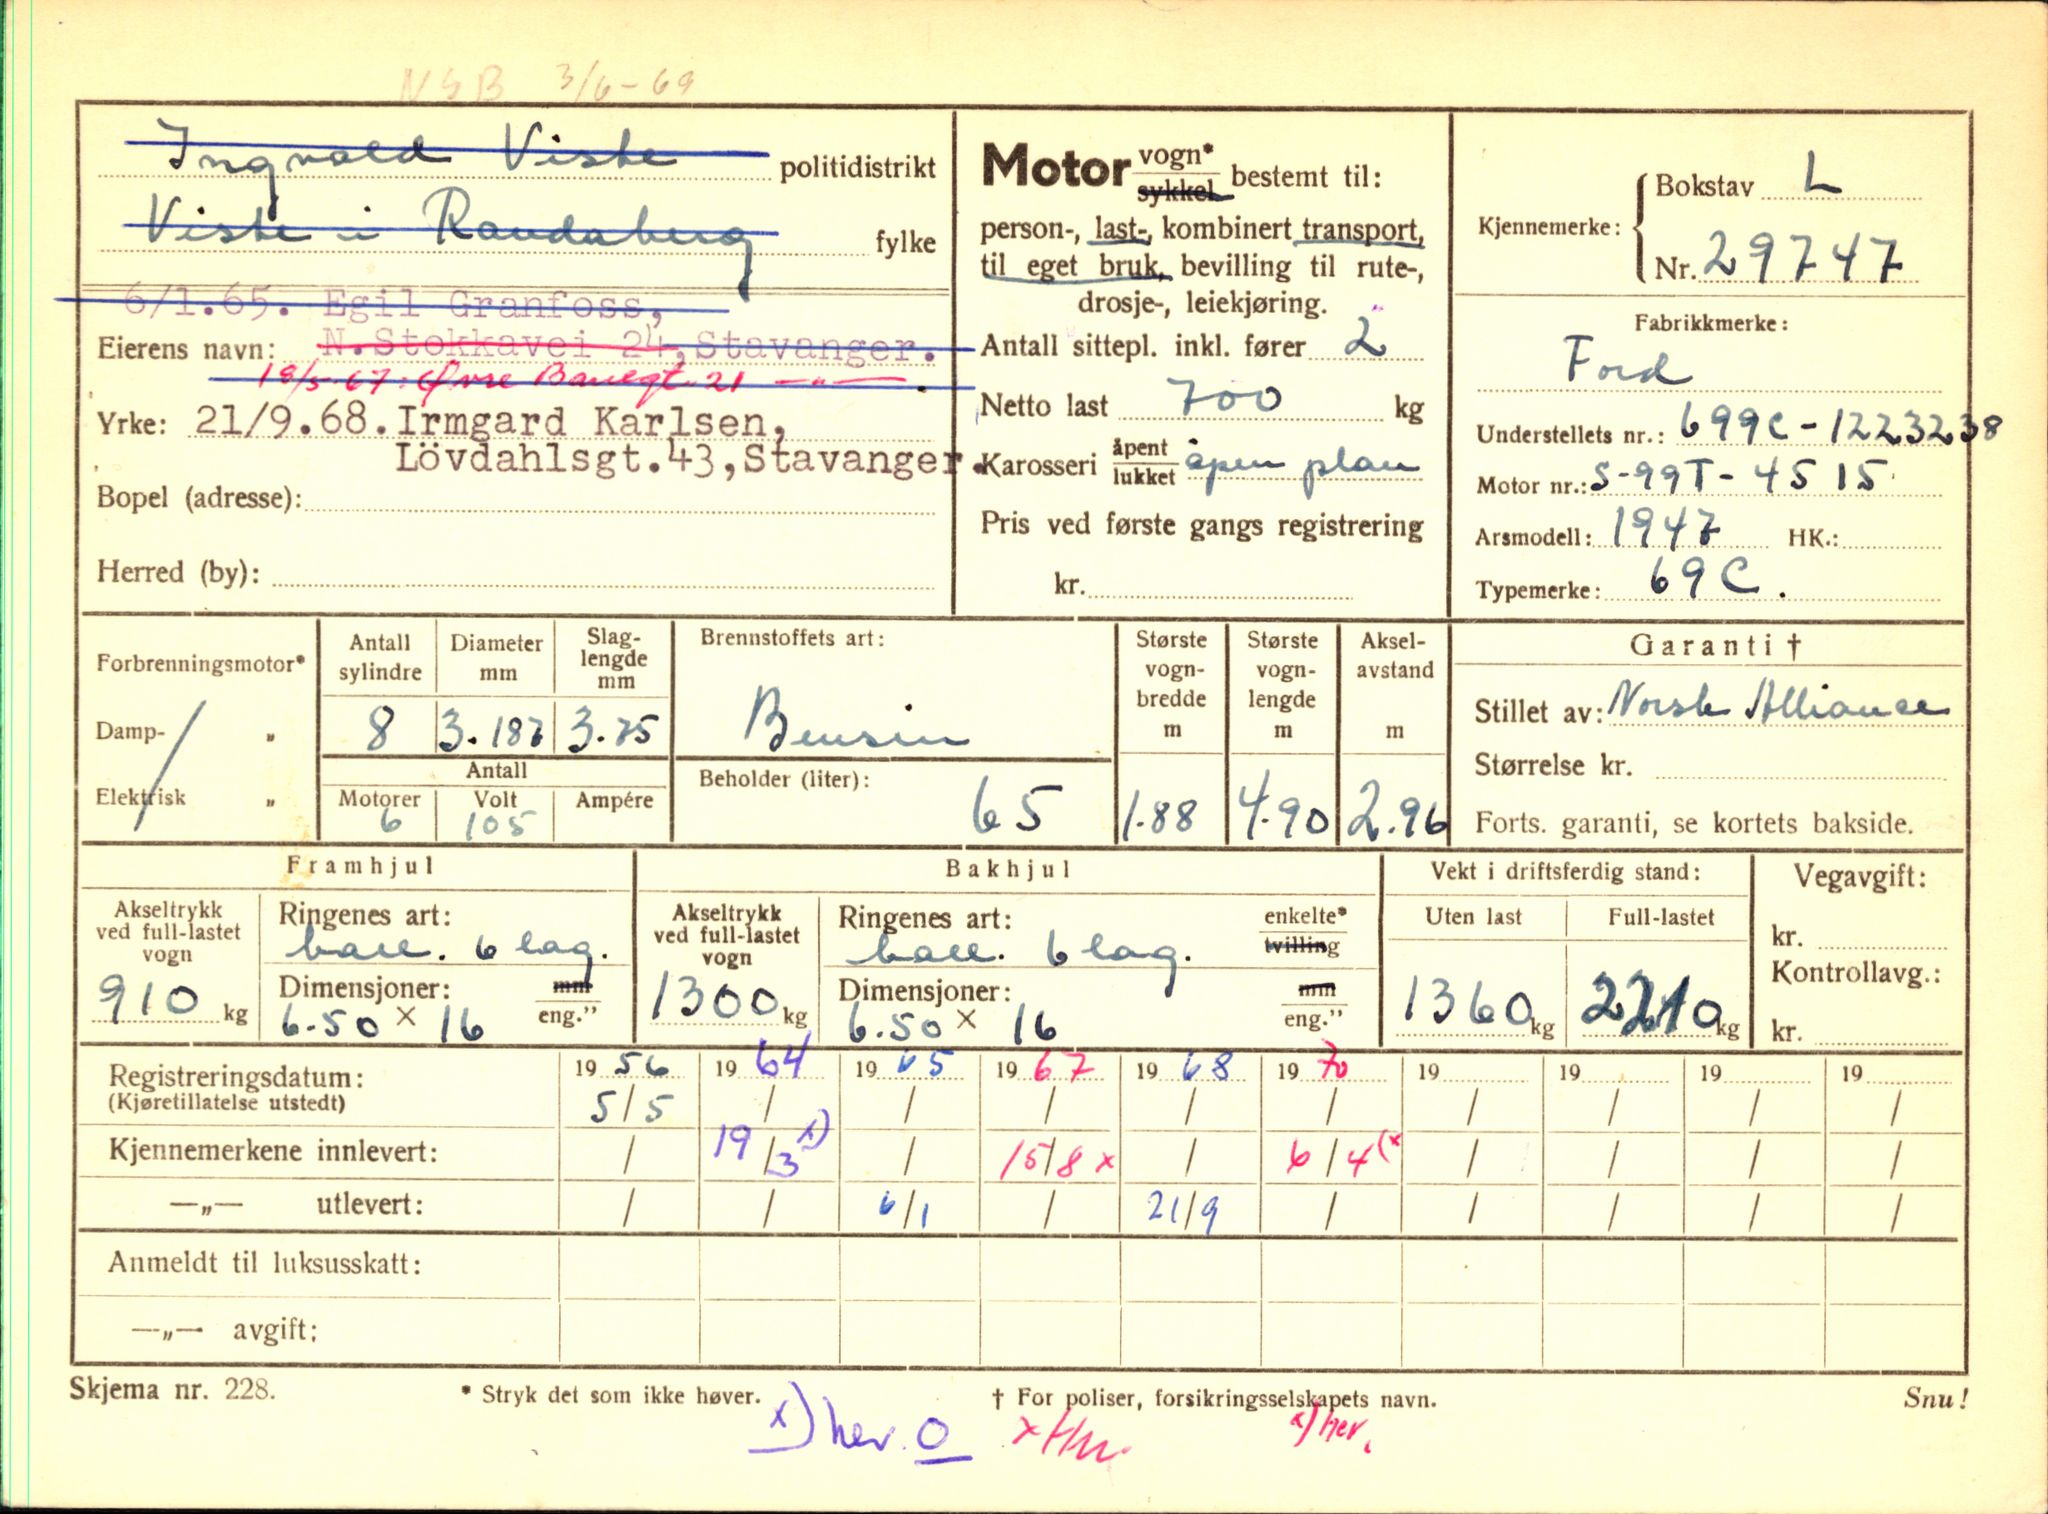 NSB 3/6-69
Ingvald Viste politidistrikt
Viste i Randaberg fylke
6/1.65. Egil Granfoss,
Eierens navn: N.Stokkavei 24, Stavanger.
18/5-67: Øvre Banegt. 21 —"—.
Yrke: 21/9.68. Irmgard Karlsen,
Lövdahlsgt.43, Stavanger.
Bopel (adresse):
Herred (by):
Motor vogn* sykkel bestemt til:
person-, last-, kombinert transport,
til eget bruk, bevilling til rute-,
drosje-, leiekjøring.
Antall sittepl. inkl. fører 2
Netto last 700 kg
Karosseri åpent lukket åpen plan
Pris ved første gangs registrering
kr.
Kjennemerke: Bokstav L
Nr. 29747
Fabrikkmerke:
Ford
Understellets nr.: 699C-1223238
Motor nr.: S-99T-4515
Arsmodell: 1947 HK.:
Typemerke: 69C.
Forbrenningsmotor*
Damp- "
Elektrisk "
Antall sylindre Diameter mm Slag-lengde mm
8 3.187 3.75
Antall
Motorer Volt Ampére
6 105
Brennstoffets art:
Bensin
Beholder (liter):
65
Største vogn-bredde m Største vogn-lengde m Aksel-avstand m
1.88 4.90 2.96
Garanti †
Stillet av: Norsk Alliance
Størrelse kr.
Forts. garanti, se kortets bakside.
Framhjul
Akseltrykk ved full-lastet vogn
910 kg
Ringenes art:
ball. 6 lag.
Dimensjoner: mm eng."
6.50 x 16
Bakhjul
Akseltrykk ved full-lastet vogn
1300 kg
Ringenes art: enkelte* tvilling
ball. 6 lag.
Dimensjoner: mm eng."
6.50 x 16
Vekt i driftsferdig stand:
Uten last Full-lastet
1360 kg 2210 kg
Vegavgift:
kr.
Kontrollavg.:
kr.
Registreringsdatum: 1956 1964 1965 1967 1968 1970 19 19 19 19
(Kjøretillatelse utstedt) 5/5 / / / / / / / / /
Kjennemerkene innlevert: / 19/3 x) / 15/8 x / 6/4 (x / / / /
—"— utlevert: / / 6/1 / 21/9 / / / / /
Anmeldt til luksusskatt:
—"— avgift:
Skjema nr. 228. * Stryk det som ikke høver. † For poliser, forsikringsselskapets navn. Snu!
x) her. O x x) her.